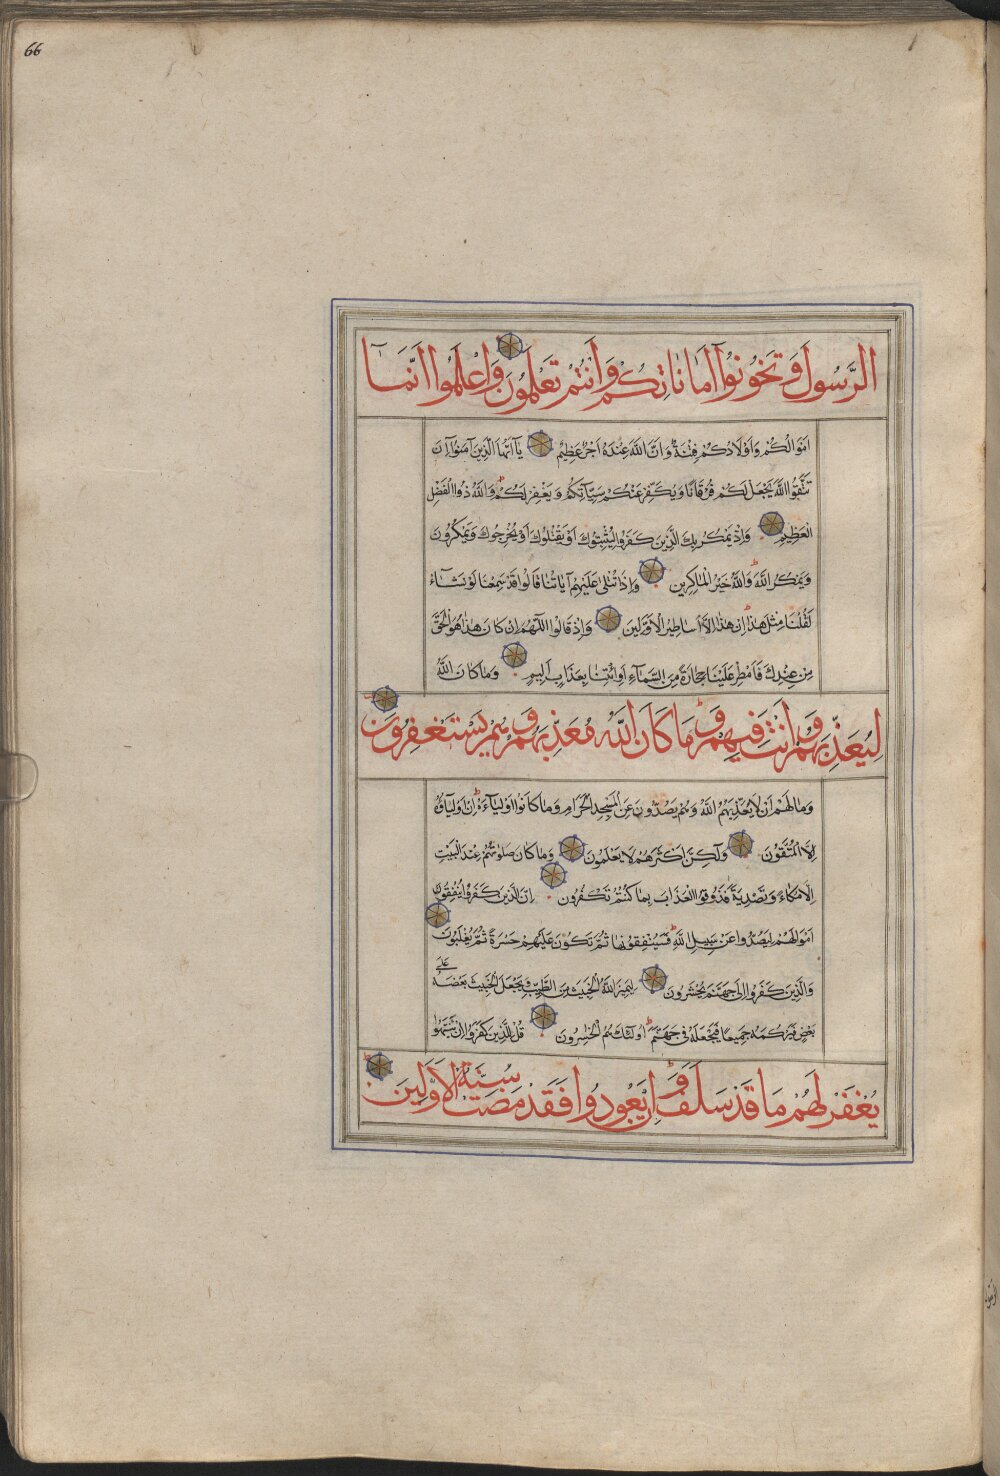 66
الرَّسُولَ وَتَخُونُوا آمَانَاتِكُمْ وَأَنْتُمْ تَعْلَمُونَ وَاعْلَمُوا أَنَّمَا
اَمْوَالُكُمْ وَاَوْلَادُكُمْ فِتْنَةٌ وَاَنَّ اللّٰهَ عِنْدَهُ اَجْرٌ عَظِيْمٌ يَآاَيُّهَا الَّذِيْنَ آمَنُوْآ اِنْ
تَتَّقُوا اللّٰهَ يَجْعَلْ لَكُمْ فُرْقَانًا وَيُكَفِّرْ عَنْكُمْ سَيِّآتِكُمْ وَيَغْفِرْ لَكُمْ وَاللّٰهُ ذُوا الْفَضْلِ
الْعَظِيْمِ وَاِذْ يَمْكُرُ بِكَ الَّذِيْنَ كَفَرُوا لِيُثْبِتُوْكَ اَوْ يَقْتُلُوْكَ اَوْ يُخْرِجُوْكَ وَيَمْكُرُوْنَ
وَيَمْكُرُ اللّٰهُ وَاللّٰهُ خَيْرُ الْمَاكِرِيْنَ وَاِذَا تُتْلٰى عَلَيْهِمْ آيَاتُنَا قَالُوا قَدْ سَمِعْنَا لَوْ نَشَآءُ
لَقُلْنَا مِثْلَ هٰذَا اِنْ هٰذَا اِلَّا اَسَاطِيْرُ الْاَوَّلِيْنَ وَاِذْ قَالُوا اللّٰهُمَّ اِنْ كَانَ هٰذَا هُوَ الْحَقَّ
مِنْ عِنْدِكَ فَاَمْطِرْ عَلَيْنَا حِجَارَةً مِنَ السَّمَآءِ اَوِ ائْتِنَا بِعَذَابٍ اَلِيْمٍ وَمَا كَانَ اللّٰهُ
لِيُعَذِّبَهُمْ وَاَنْتَ فِيْهِمْ وَمَا كَانَ اللّٰهُ مُعَذِّبَهُمْ وَهُمْ يَسْتَغْفِرُوْنَ
وَمَا لَهُمْ اَنْ لَا يُعَذِّبَهُمُ اللّٰهُ وَهُمْ يَصُدُّوْنَ عَنِ الْمَسْجِدِ الْحَرَامِ وَمَا كَانُوا اَوْلِيَآءَهُ اِنْ اَوْلِيَآؤُهُ
اِلَّا الْمُتَّقُوْنَ وَلٰكِنَّ اَكْثَرَهُمْ لَا يَعْلَمُوْنَ وَمَا كَانَ صَلٰوتُهُمْ عِنْدَ الْبَيْتِ
اِلَّا مُكَاءً وَتَصْدِيَةً فَذُوْقُوا الْعَذَابَ بِمَا كُنْتُمْ تَكْفُرُوْنَ اِنَّ الَّذِيْنَ كَفَرُوْا يُنْفِقُوْنَ
اَمْوَالَهُمْ لِيَصُدُّوا عَنْ سَبِيْلِ اللّٰهِ فَسَيُنْفِقُوْنَهَا ثُمَّ تَكُوْنُ عَلَيْهِمْ حَسْرَةً ثُمَّ يُغْلَبُوْنَ
وَالَّذِيْنَ كَفَرُوا اِلٰى جَهَنَّمَ يُحْشَرُوْنَ لِيَمِيْزَ اللّٰهُ الْخَبِيْثَ مِنَ الطَّيِّبِ وَيَجْعَلَ الْخَبِيْثَ بَعْضَهُ عَلٰى
بَعْضٍ فَيَرْكُمَهُ جَمِيْعًا فَيَجْعَلَهُ فِيْ جَهَنَّمَ اُولٰئِكَ هُمُ الْخٰسِرُوْنَ قُلْ لِلَّذِيْنَ كَفَرُوا اِنْ يَنْتَهُوْا
يُغْفَرْ لَهُمْ مَا قَدْ سَلَفَ وَاِنْ يَعُوْدُوْا فَقَدْ مَضَتْ سُنَّةُ الْاَوَّلِيْنَ